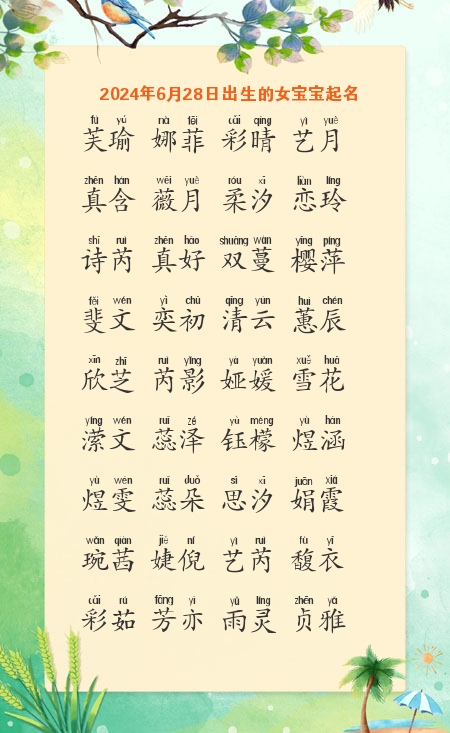 2024年6月28日出生的女宝宝起名
fú yú nà fēi cǎi qíng yì yuè
芙瑜 娜菲 彩晴 艺月
zhēn hán wēi yuè róu xī liàn líng
真含 薇月 柔汐 恋玲
shī ruì zhēn hǎo shuāng wàn yīng píng
诗芮 真好 双蔓 樱萍
fěi wén yì chū qīng yún huì chén
斐文 奕初 清云 蕙辰
xīn zhī ruì yǐng yà yuán xuě huā
欣芝 芮影 娅媛 雪花
yíng wén ruǐ zé yù méng yù hán
潆文 蕊泽 钰檬 煜涵
yù wén ruǐ duǒ sī xī juān xiá
煜雯 蕊朵 思汐 娟霞
wǎn qiàn jié ní yì ruì fù yī
琬茜 婕倪 艺芮 馥衣
cǎi rú fāng yì yǔ líng zhēn yǎ
彩茹 芳亦 雨灵 贞雅